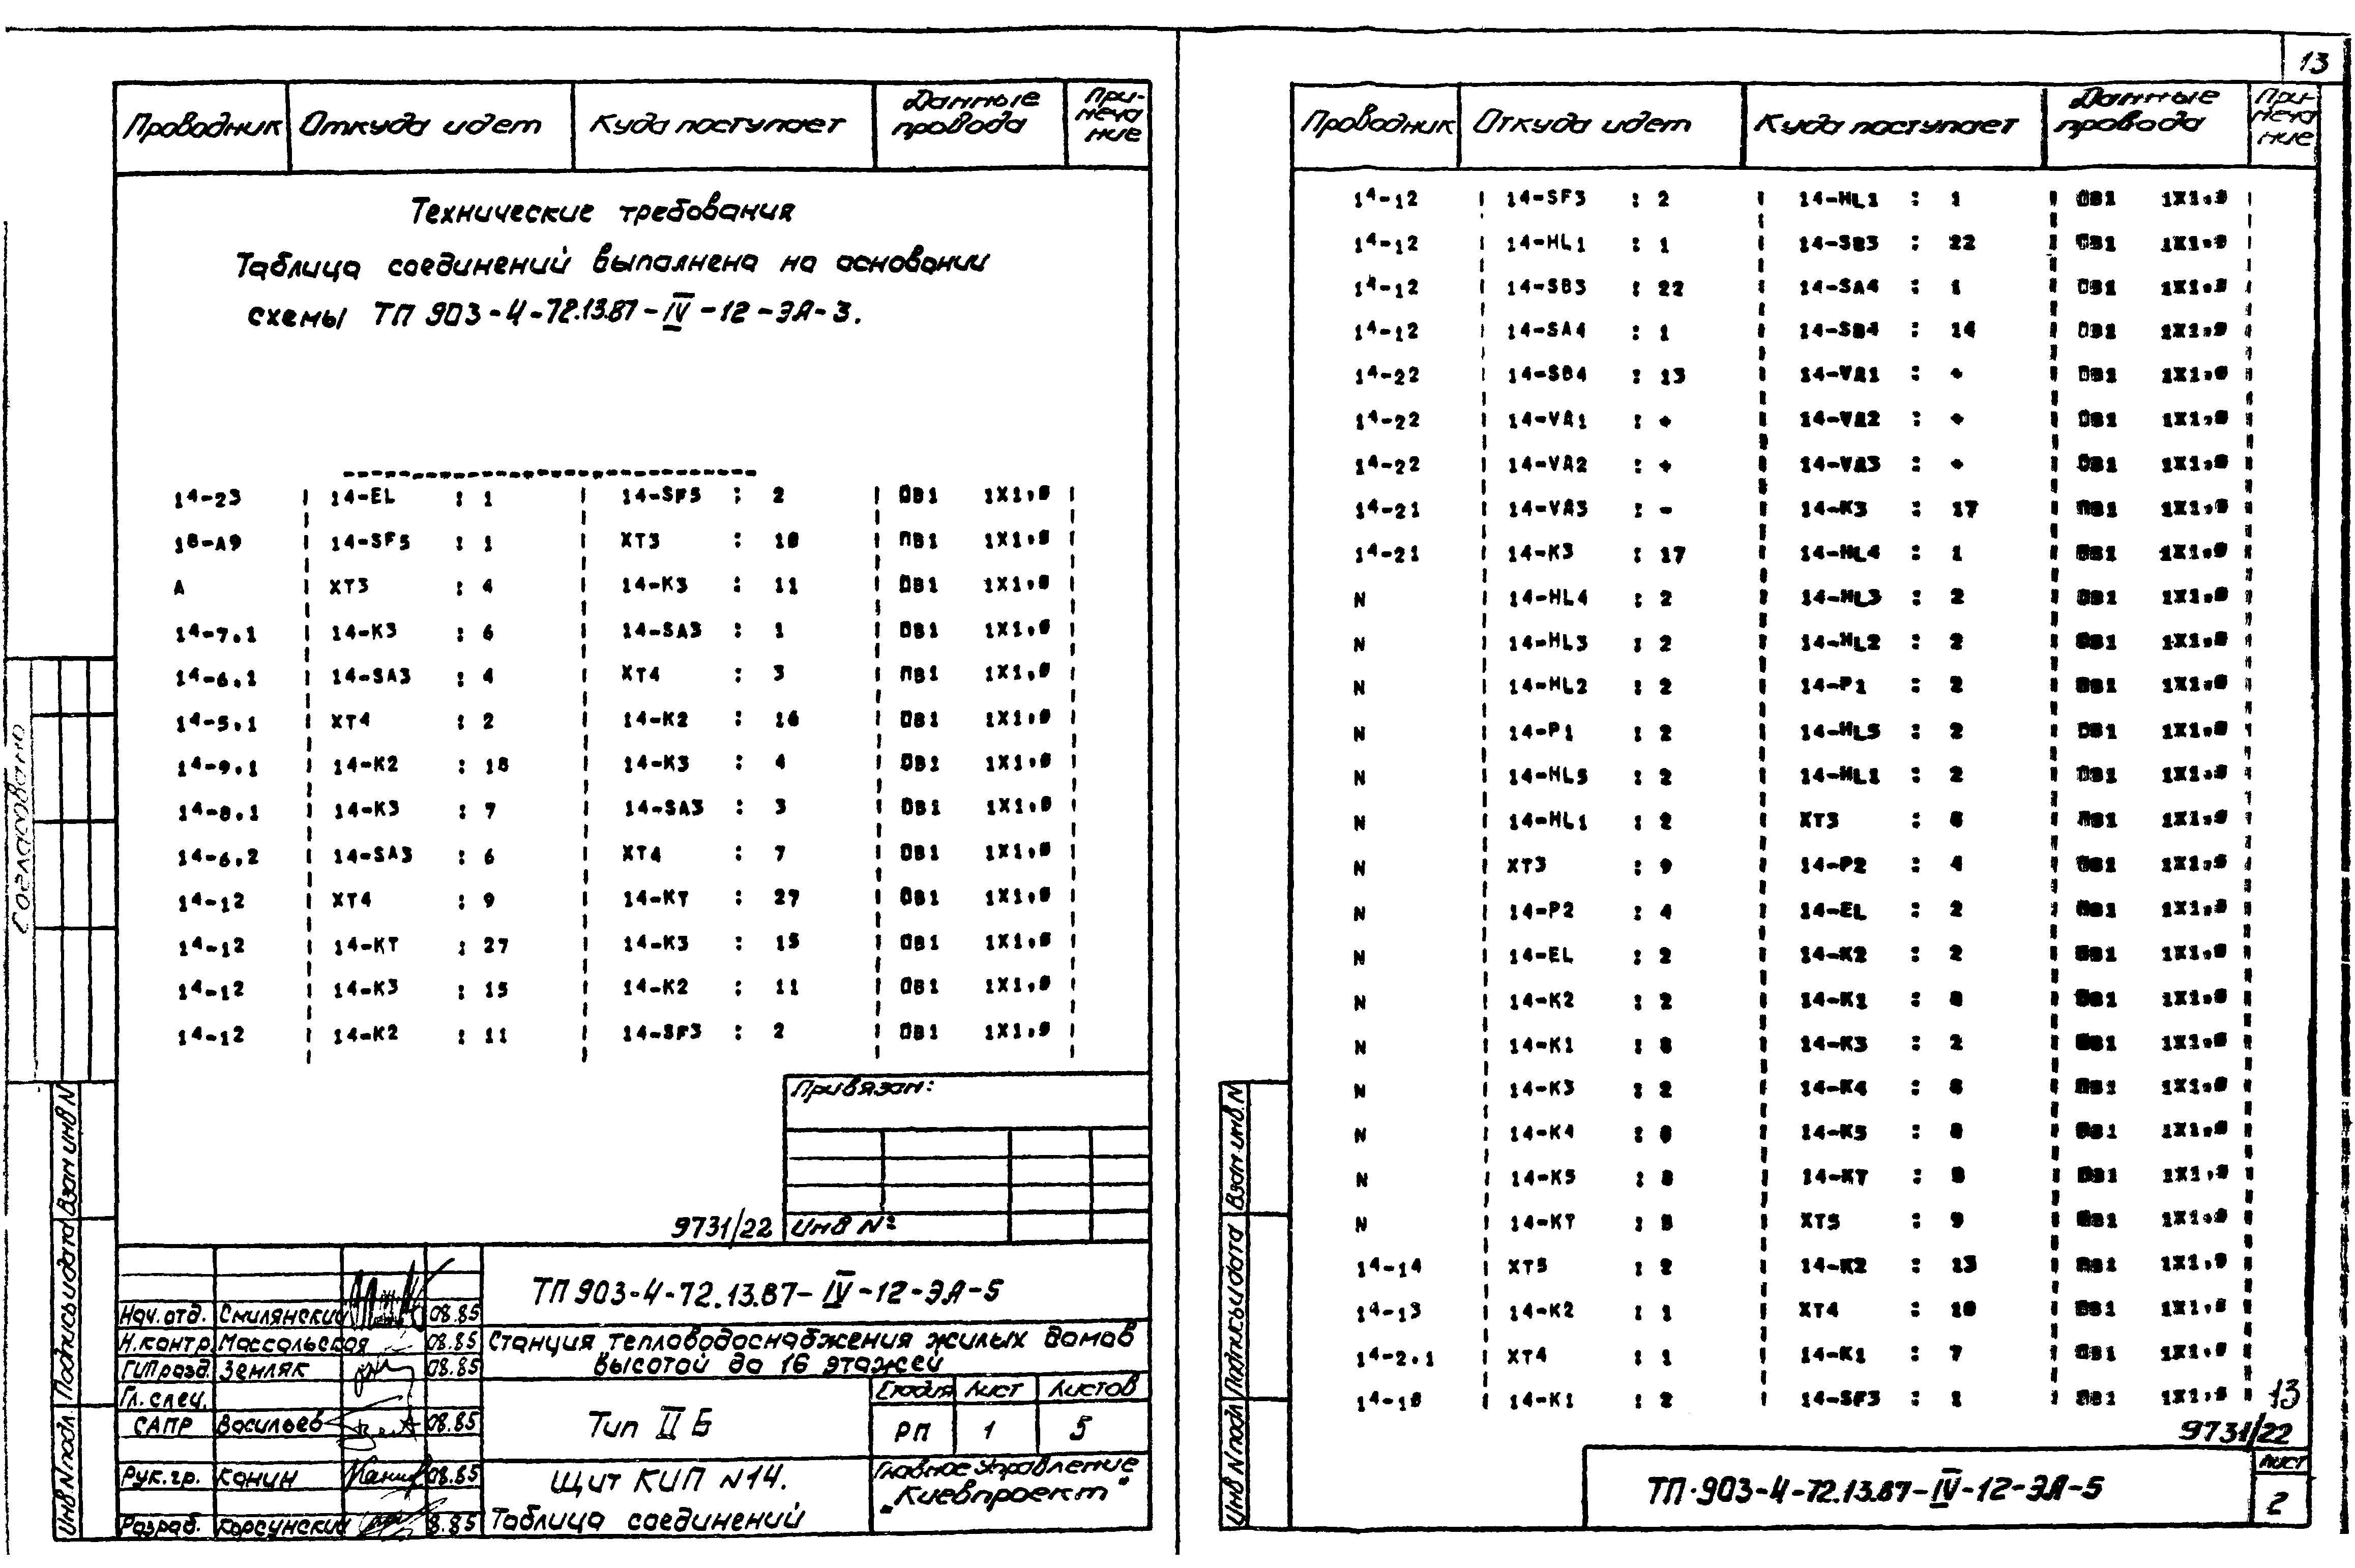 13
Проводник Откуда идет Куда поступает Данные провода Примечание
Технические требования
Таблица соединений выполнена на основании
схемы ТП 903-4-72.13.87-IV-12-ЭА-3.
14-23 14-EL : 1 14-SF5 : 2 ПВ1 1X1,0
10-А9 14-SF5 : 1 XT3 : 10 ПВ1 1X1,0
А XT3 : 4 14-K3 : 11 ПВ1 1X1,0
14-7.1 14-K3 : 6 14-SA3 : 1 ПВ1 1X1,0
14-6.1 14-SA3 : 4 XT4 : 3 ПВ1 1X1,0
14-5.1 XT4 : 2 14-K2 : 16 ПВ1 1X1,0
14-9.1 14-K2 : 18 14-K3 : 4 ПВ1 1X1,0
14-8.1 14-K3 : 7 14-SA3 : 3 ПВ1 1X1,0
14-6.2 14-SA3 : 6 XT4 : 7 ПВ1 1X1,0
14-12 XT4 : 9 14-KT : 27 ПВ1 1X1,0
14-12 14-KT : 27 14-K3 : 15 ПВ1 1X1,0
14-12 14-K3 : 15 14-K2 : 11 ПВ1 1X1,0
14-12 14-K2 : 11 14-SF3 : 2 ПВ1 1X1,0
Согласовано
Привязан:
9731/22 Инв №
ТП 903-4-72.13.87-IV-12-ЭА-5
Нач.отд. Смилянский 08.85
Н.контр. Массольская 08.85
ГИП разд. Земляк 08.85
Гл.спец.
САПР Васильев 08.85
Рук.гр. Канин 08.85
Разраб. Корсунский 8.85
Станция тепловодоснабжения жилых домов
высотой до 16 этажей
Тип II Б
Стадия Лист Листов
РП 1 5
Щит КИП N14.
Таблица соединений
Главное Управление
"Киевпроект"
Инв N подл Подпись и дата Взам инв N
Проводник Откуда идет Куда поступает Данные провода Примечание
14-12 14-SF3 : 2 14-HL1 : 1 ПВ1 1X1,0
14-12 14-HL1 : 1 14-SB3 : 22 ПВ1 1X1,0
14-12 14-SB3 : 22 14-SA4 : 1 ПВ1 1X1,0
14-12 14-SA4 : 1 14-SB4 : 14 ПВ1 1X1,0
14-22 14-SB4 : 13 14-VD1 : + ПВ1 1X1,0
14-22 14-VD1 : + 14-VD2 : + ПВ1 1X1,0
14-22 14-VD2 : + 14-VD3 : + ПВ1 1X1,0
14-21 14-VD3 : - 14-K3 : 17 ПВ1 1X1,0
14-21 14-K3 : 17 14-HL4 : 1 ПВ1 1X1,0
N 14-HL4 : 2 14-HL3 : 2 ПВ1 1X1,0
N 14-HL3 : 2 14-HL2 : 2 ПВ1 1X1,0
N 14-HL2 : 2 14-P1 : 2 ПВ1 1X1,0
N 14-P1 : 2 14-HL5 : 2 ПВ1 1X1,0
N 14-HL5 : 2 14-HL1 : 2 ПВ1 1X1,0
N 14-HL1 : 2 XT3 : ПВ1 1X1,0
N XT3 : 9 14-P2 : 4 ПВ1 1X1,0
N 14-P2 : 4 14-EL : 2 ПВ1 1X1,0
N 14-EL : 2 14-K2 : 2 ПВ1 1X1,0
N 14-K2 : 2 14-K1 : 8 ПВ1 1X1,0
N 14-K1 : 8 14-K3 : 2 ПВ1 1X1,0
N 14-K3 : 2 14-K4 : 8 ПВ1 1X1,0
N 14-K4 : 8 14-K5 : 8 ПВ1 1X1,0
N 14-K5 : 8 14-KT : 8 ПВ1 1X1,0
N 14-KT : 8 XT5 : 9 ПВ1 1X1,0
14-14 XT5 : 2 14-K2 : 13 ПВ1 1X1,0
14-13 14-K2 : 1 XT4 : 10 ПВ1 1X1,0
14-2.1 XT4 : 1 14-K1 : 7 ПВ1 1X1,0
14-10 14-K1 : 2 14-SF3 : 1 ПВ1 1X1,0
13
9731/22
Инв N подл Подпись и дата Взам инв. N
ТП.903-4-72.13.87-IV-12-ЭА-5
Лист
2